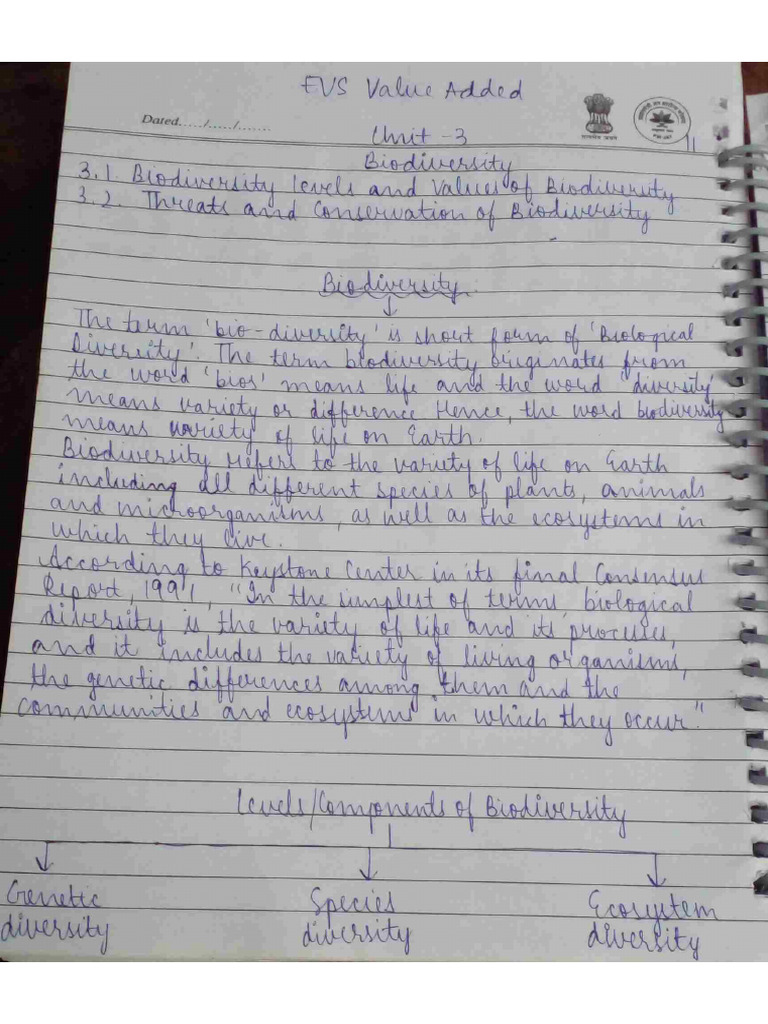 EVS Value Added
Dated...../...../.......
Unit - 3
Biodiversity
3.1. Biodiversity levels and Values of Biodiversity
3.2. Threats and Conservation of Biodiversity
Biodiversity
The term 'bio-diversity' is short form of 'Biological
Diversity'. The term biodiversity originates from
the word 'bios' means life and the word 'diversity'
means variety or difference Hence, the word biodiversity
means variety of life on Earth.
Biodiversity refers to the variety of life on Earth
including all different species of plants, animals
and microorganisms, as well as the ecosystems in
which they live.
According to Keystone Center in its final Consensus
Report, 1991, "In the simplest of terms, biological
diversity is the variety of life and its processes,
and it includes the variety of living organisms,
the genetic differences among them and the
communities and ecosystems in which they occur."
Levels/Components of Biodiversity
Genetic diversity
Species diversity
Ecosystem diversity